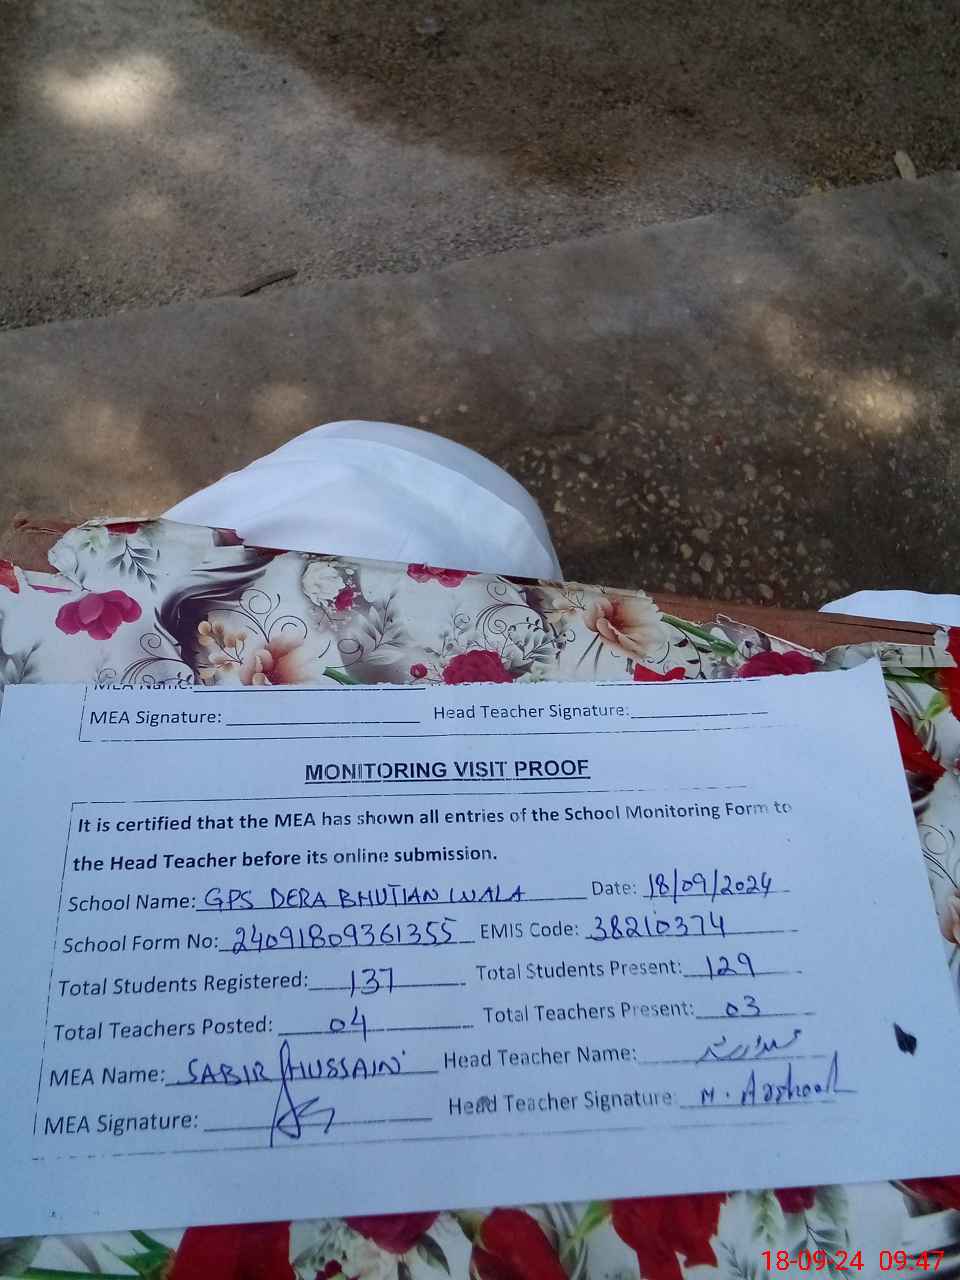 MEA Name:
MEA Signature: Head Teacher Signature:
MONITORING VISIT PROOF
It is certified that the MEA has shown all entries of the School Monitoring Form to
the Head Teacher before its online submission.
School Name: GPS DERA BHUTIAN WALA Date: 18/09/2024
School Form No: 24091809361355 EMIS Code: 38210374
Total Students Registered: 137 Total Students Present: 129
Total Teachers Posted: 04 Total Teachers Present: 03
MEA Name: SABIR HUSSAIN Head Teacher Name:
MEA Signature: Head Teacher Signature: M. Arshad
18-09-24 09:47